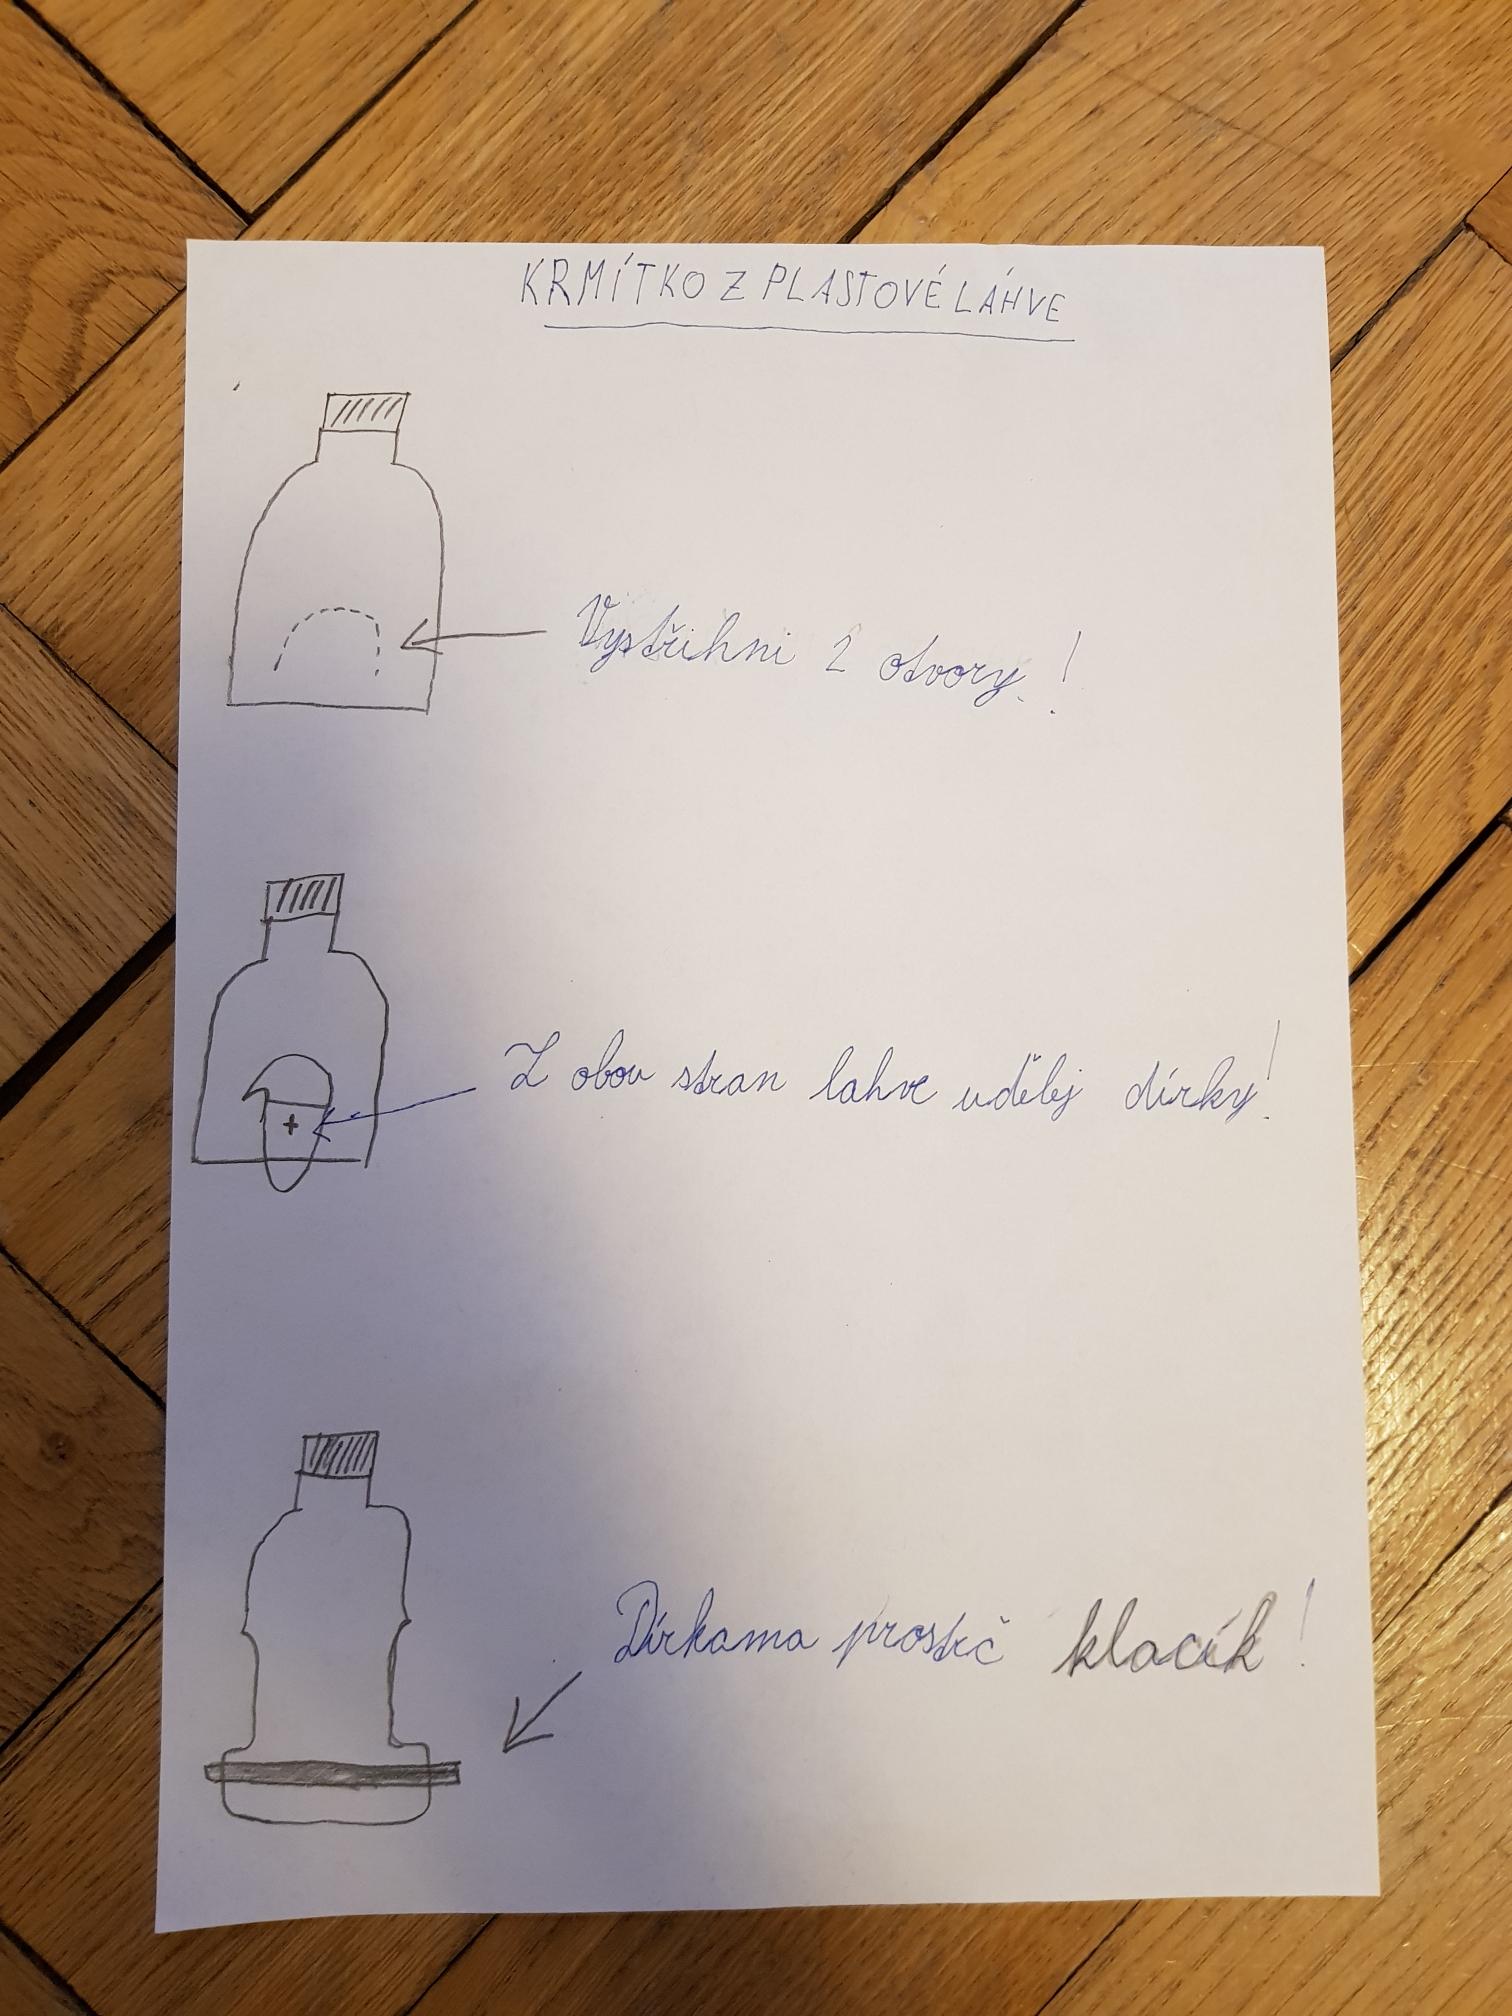 KRMÍTKO Z PLASTOVÉ LÁHVE
Vystřihni 2 otvory.!
Z obou stran lahve udělej dírky!
Dírkama prostrč klacík!